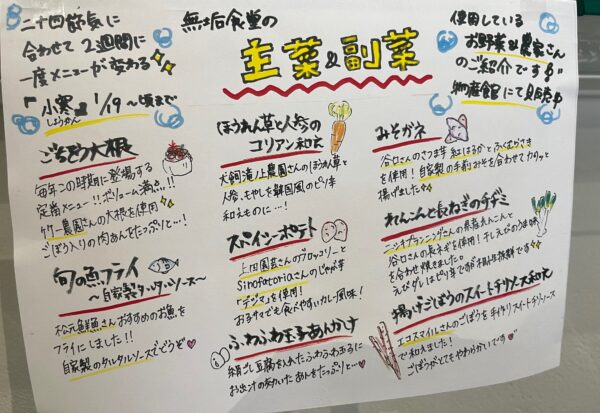 二十四節気に
合わせて2週間に
一度メニューが変わる
『小寒』1/19〜頃まで
しょうかん
無垢食堂の
主菜&副菜
使用している
お野菜&農家さん
のご紹介です
物産館にて販売中
ごちそう大根
毎年この時期に登場する
定番メニュー!!ボリューム満点♪!!
竹一農園さんの大根を使用
ごぼう入りの肉あんをたっぷりと…!
旬の魚フライ
〜自家製タルタルソース〜
松元鮮魚さんおすすめのお魚を
フライにしました!!
自家製のタルタルソースでどうぞ♥
ほうれん草と人参の
コリアン和え
犬飼滝ノ上農園さんのほうれん草と
人参、もやしを韓国風のピリ辛
和えものに…!
スパイシーポテト
上田園芸さんのブロッコリーと
Sinofatoriaさんのじゃが芋
「デジマ」を使用!
お子様でも食べやすいカレー風味!
ふわふわ玉子あんかけ
絹ごし豆腐を入れたふわふわ玉子に
お出汁の効いたあんをたっぷりと…♥
みそガネ
谷口さんのさつま芋 紅はるかとふくむらさき
を使用!自家製の手前みそを合わせてカラッと
揚げました
れんこんと長ねぎのチヂミ
ニシオプランニングさんの県産れんこんと
谷口さんの長ネギを使用!干しえびのうま味
を合わせ焼きました
えびダレはピリ辛で相性抜群です
揚げごぼうのスイートチリソース和え
エコスマイルさんのごぼうを手作りスイートチリソース
で和えました!
ごぼうがとてもやわらかいです♥